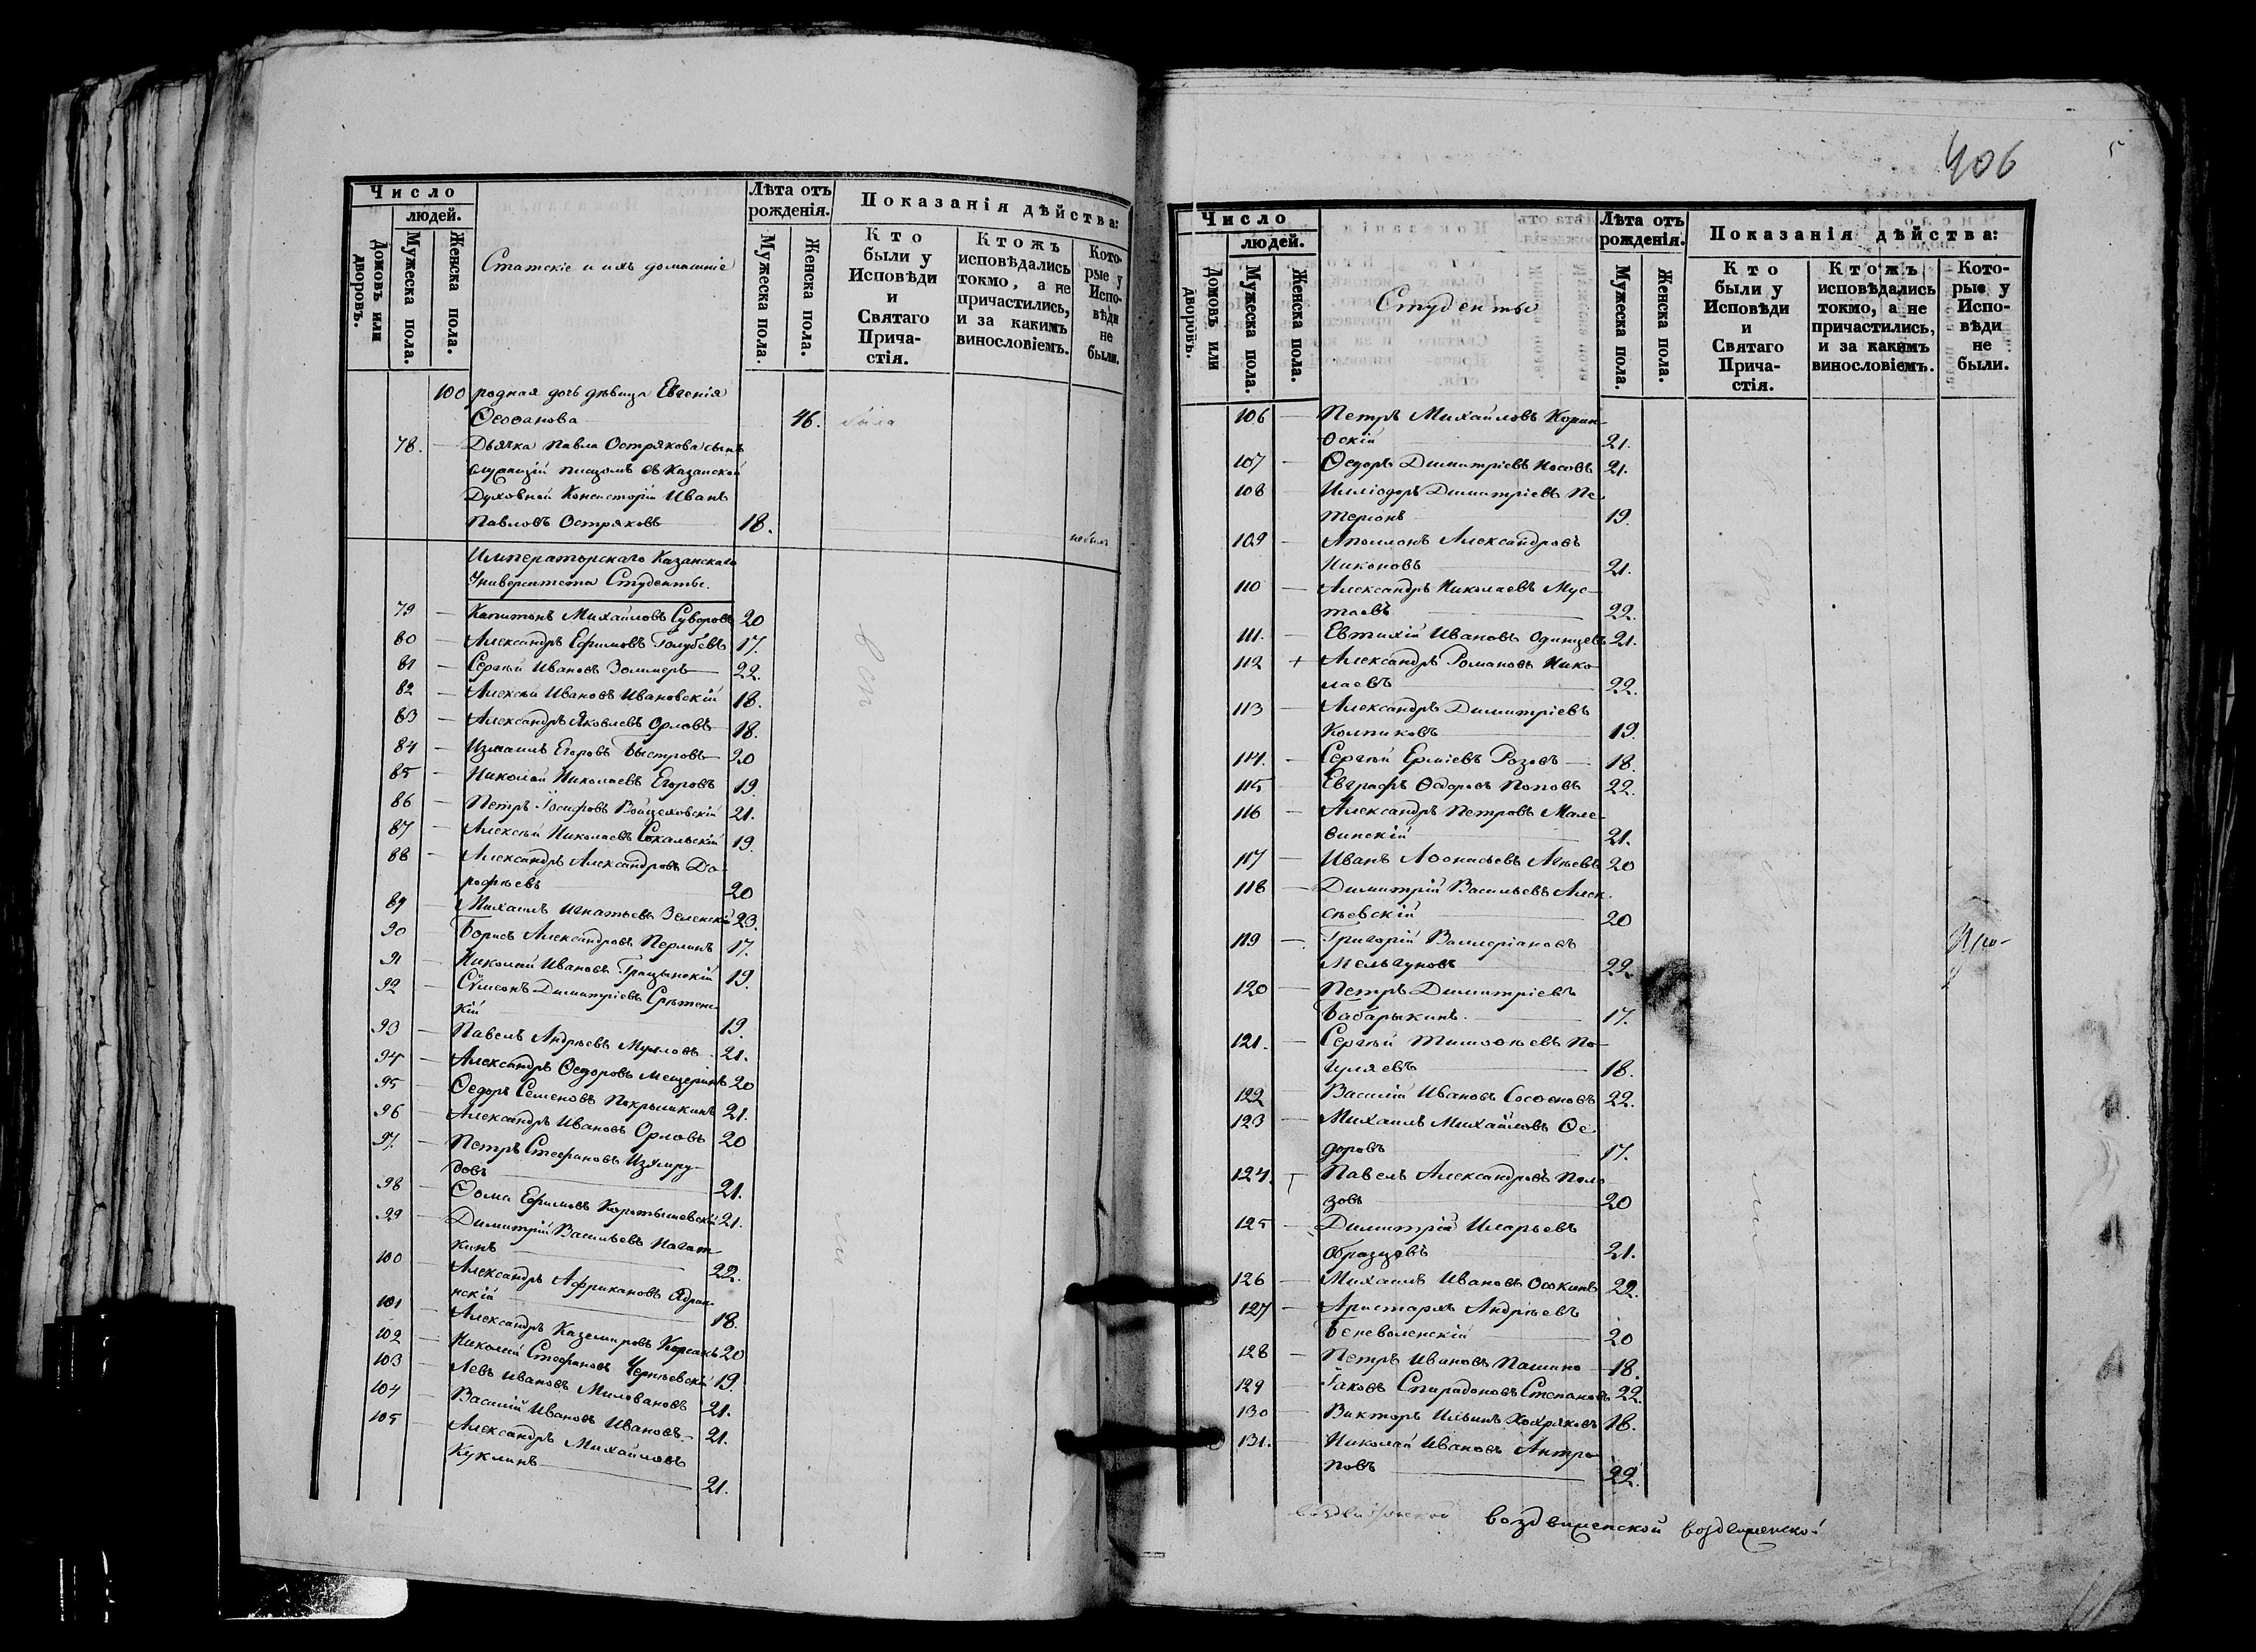 Число
людей.
Домовъ или дворовъ.
Мужеска пола.
Женска пола.
Статскіе и ихъ домашніе
Лѣта отъ рожденія.
Мужеска пола.
Женска пола.
Показанія дѣйства:
Кто были у Исповѣди и Святаго Причастія.
Ктожъ исповѣдались токмо, а не причастились, и за какимъ винословіемъ.
Которые у Исповѣди не были.
100 родная дочь дѣвица Евгенія
Ѳеофанова 46. была
78. — Дьячка Павла Острякова сынъ
служащій писцомъ въ Казанской
Духовной Консисторіи Иванъ
Павловъ Остряковъ 18. небылъ
Императорскаго Казанскаго
Университета Студенты.
79 — Капитонъ Михайловъ Суворовъ 20
80 — Александръ Ефимовъ Голубевъ 17.
81 — Сергѣй Ивановъ Зоммеръ 22.
82 — Алексѣй Ивановъ Ивановскій 18.
83 — Александръ Яковлевъ Орловъ 18.
84 — Измаилъ Егоровъ Быстровъ 20
85 — Николай Николаевъ Егоровъ 19.
86 — Петръ Іосифовъ Войцеховскій 21.
87 — Алексѣй Николаевъ Сокальскій 19.
88 — Александръ Александровъ До-
рофѣевъ 20
89 — Михаилъ Игнатьевъ Зеленскій 23.
90 — Борисъ Александровъ Перлинъ 17.
91 — Николай Ивановъ Грацынскій 19.
92 — Сѵмеонъ Димитріевъ Срѣтенс-
кій 19.
93 — Павелъ Андрѣевъ 21.
94 — Александръ Ѳедоровъ Мещеринъ 20
95 — Ѳедоръ Семеновъ Покрышкинъ 21.
96 — Александръ Ивановъ Орловъ 20
97. — Петръ Стефановъ Изумру-
довъ 21.
98 — Ѳома Ефимовъ Коротышевскій 21.
99 — Димитрій Васильевъ Нагат-
кинъ 22.
100 — Александръ Африкановъ Ядрин-
нскій 18.
101 — Александръ Каземировъ Корсакъ 20
102 — Николай Стефановъ Чернѣевскій 19.
103 — Левъ Ивановъ Миловановъ 21.
104 — Василій Ивановъ Ивановъ 21.
105 — Александръ Михайловъ
Куклинъ 21.
406
Число
людей.
Домовъ или дворовъ.
Мужеска пола.
Женска пола.
Студенты
Лѣта отъ рожденія.
Мужеска пола.
Женска пола.
Показанія дѣйства:
Кто были у Исповѣди и Святаго Причастія.
Ктожъ исповѣдались токмо, а не причастились, и за какимъ винословіемъ.
Которые у Исповѣди не были.
106 — Петръ Михайловъ Корин-
ѳскій 21.
107 — Ѳедоръ Димитріевъ Носовъ 21.
108 — Илліодоръ Димитріевъ Пе-
теріонъ 19.
109 — Аполлонъ Александровъ
Никоновъ 21.
110 — Александръ Николаевъ Мус-
таевъ 22.
111. — Евтихій Ивановъ Одинцовъ 21.
112 + Александръ Романовъ Нико-
лаевъ 22.
113 — Александръ Димитріевъ
Колпиковъ 19.
114. — Сергѣй Ерміевъ Розовъ 18.
115 — Евграфъ Ѳедоровъ Поповъ 22.
116 — Александръ Петровъ Мале-
винскій 21.
117 — Иванъ Аѳонасьевъ Агѣевъ 20
118 — Димитрій Васильевъ Алек-
сѣевскій 20
119 — Григорій Валеріановъ
Мельгуновъ 22.
120 — Петръ Димитріевъ
Бабарыкинъ. 17.
121. — Сергѣй Тимоѳѣевъ По-
гуляевъ 18.
122 — Василій Ивановъ Сосоеновъ 22.
123 — Михаилъ Михайловъ Ѳе-
доровъ 17.
124. Павелъ Александровъ Поло-
зовъ 20
125 — Димитрій Иларьевъ
Образцовъ 21.
126 — Михаилъ Ивановъ Осокинъ 22.
127 — Аристархъ Андрѣевъ
Беневоленскій 20
128 — Петръ Ивановъ Пашино 18.
129 — Іаковъ Спиридоновъ Степановъ 22.
130 — Викторъ Ильинъ Хохряковъ 18.
131. — Николай Ивановъ Антро-
повъ 22.
воздвиженской воздвиженской воздвиженской